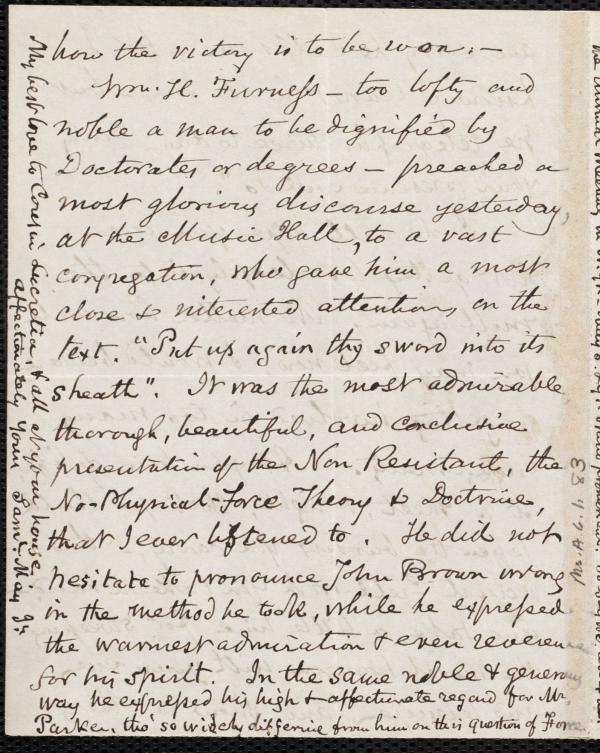 how the victory is to be won: —
Wm. H. Furness — too lofty and
noble a man to be dignified by
Doctorates or degrees — preached a
most glorious discourse yesterday,
at the Music Hall, to a vast
congregation, who gave him a most
close & interested attention, on the
text. "Put up again thy sword into its
sheath". It was the most admirable
thorough, beautiful, and conclusive
presentation of the Non Resistant, the
No-Physical-Force Theory & Doctrine,
that I ever listened to. He did not
hesitate to pronounce John Brown wrong
in the method he took, while he expressed
the warmest admiration & even reverence
for his spirit. In the same noble & generous
way he expressed his high & affectionate regard for Mr.
Parker, tho' so widely differing from him on this question of Force.
My best love to Cousin Lucretia, & all at your house.
affectionately yours Saml. May Jr.
Ms.A.6.1.83